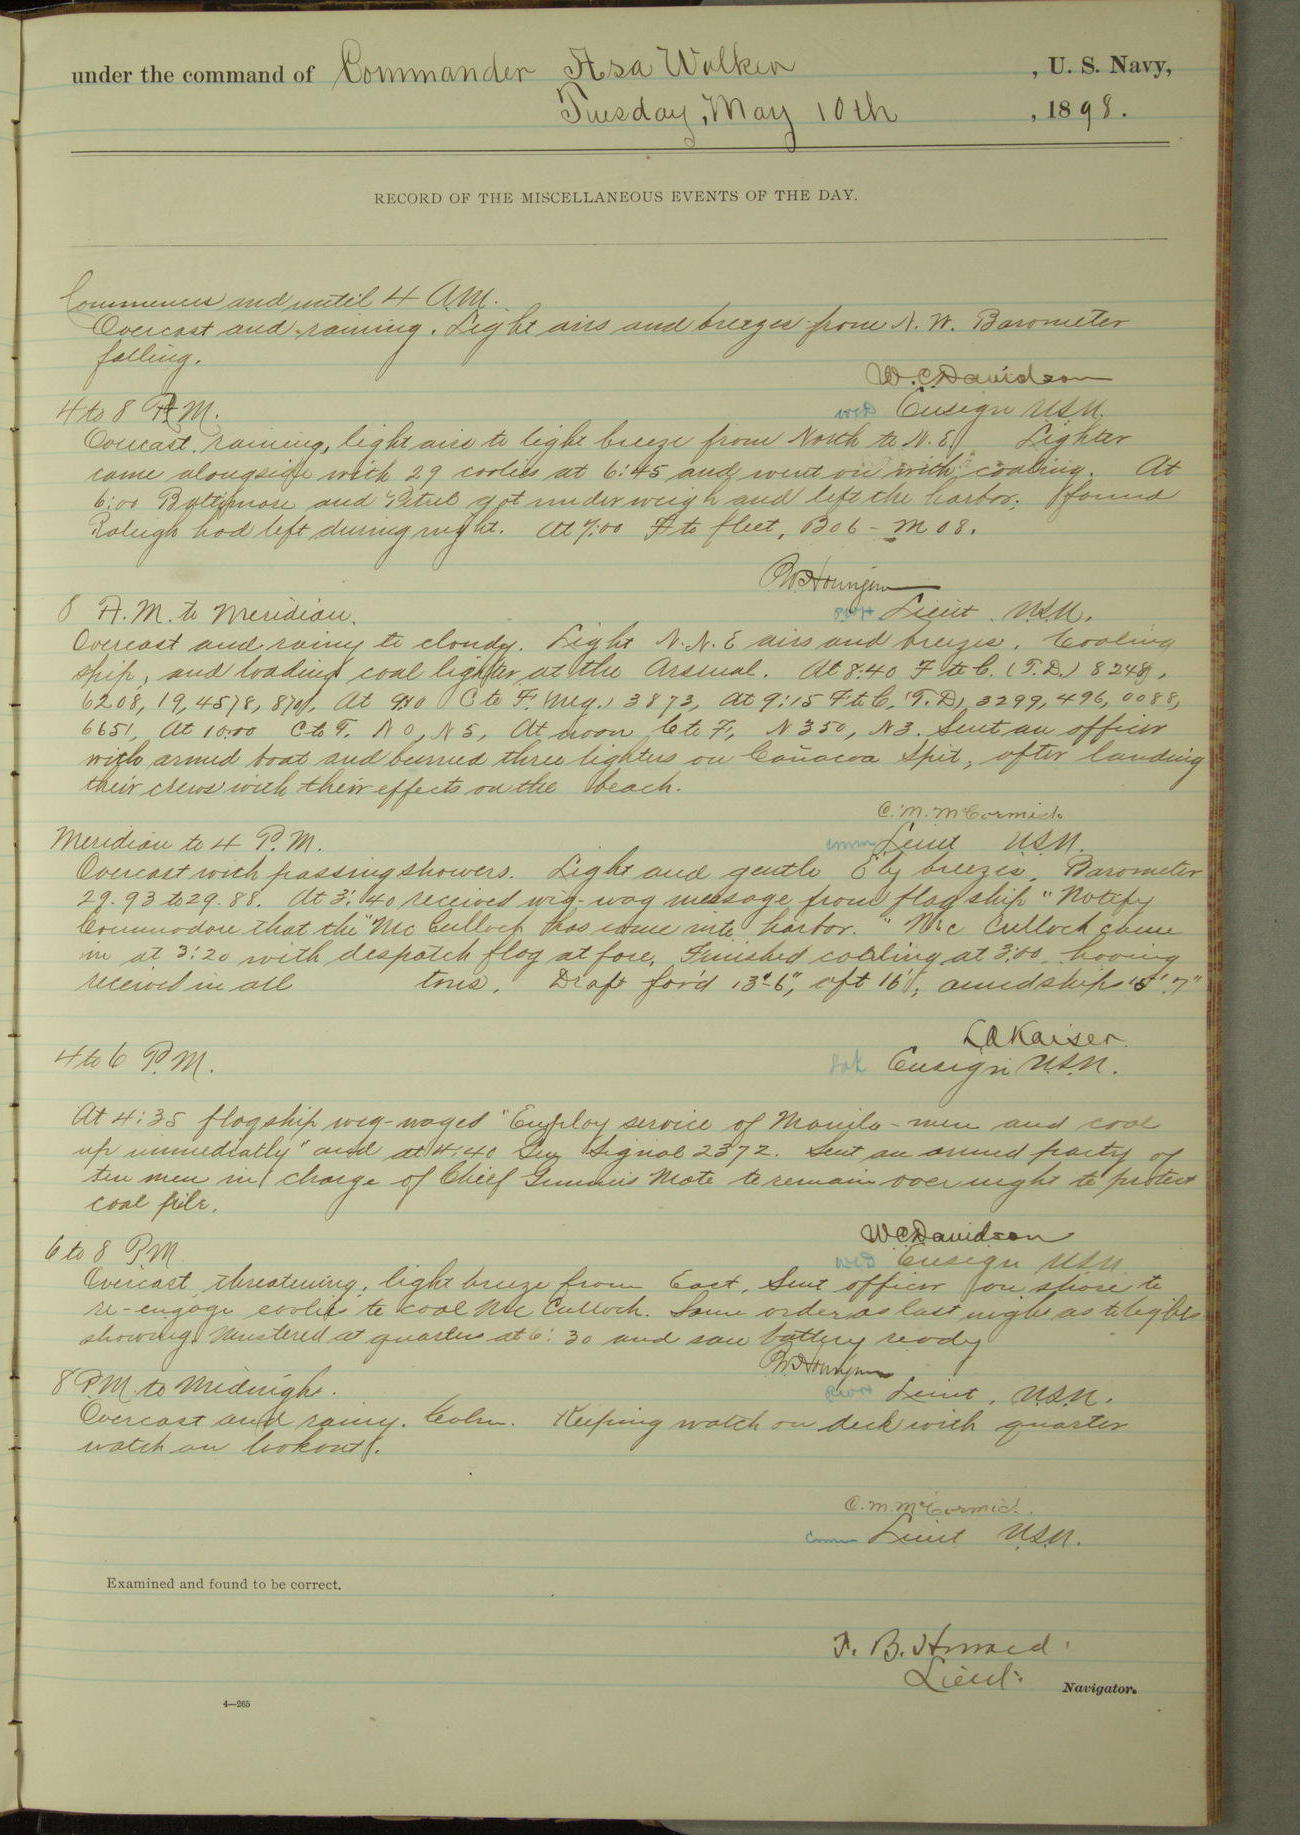 under the command of Commander Asa Walker , U. S. Navy,
Tuesday, May 10th , 1898.
RECORD OF THE MISCELLANEOUS EVENTS OF THE DAY.
Commences and until 4 A.M.
Overcast and raining. Light airs and breezes from N. W. Barometer
falling.
W. C. Davidson
WCD Ensign U.S.N.
4 to 8 A.M.
Overcast, raining, light airs to light breeze from North to N.E. Lighter
came alongside with 29 coolies at 6:45 and went on with coaling. At
6:00 Baltimore and Petrel got underweigh and left the harbor; found
Raleigh had left during night. At 7:00 F to fleet, B06 - M 08.
Lieut. U.S.N.
8 A.M. to Meridian.
Overcast and rainy to cloudy. Light N.N.E airs and breezes. Coaling
ship, and loading coal lighter at the Arsenal. At 8:40 F to C. (T.D.) 8248,
6208, 19, 4578, At C to F. Meg.) 3873, At 9:15 F to C. (T.D.) 3299, 496, 0088,
6651, At 10:00 C to F. N 0, N 5, At noon C to F, N 350, N3. Sent an officer
with armed boat and burned three lighters on Cañacoa Spit, after landing
their crews with their effects on the beach.
C. M. McCormick
Lieut U.S.N.
Meridian to 4 P.M.
Overcast with passing showers. Light and gentle E'ly breezes. Barometer
29.93 to 29.88. At 3:40 received wig-wag message from flagship "Notify
Commodore that the "McCulloch has come into harbor." McCulloch came
in at 3:20 with despatch flag at fore. Finished coaling at 3:00 having
received in all tons. Draft for'd 13'-6", aft 16', amidships 15' 7"
L A Kaiser
lak Ensign U.S.N.
4 to 6 P.M.
At 4:35 flagship wig-waged "Employ service of Manila-men and coal
up immediatly" and at 4:40 Gen Signal 2372. Sent an armed party of
ten men in charge of Chief Gunner's Mate to remain over night to protect
coal pile.
W C Davidson
WCD Ensign USN
6 to 8 P.M
Overcast, threatening, light breeze from East. Sent officer on shore to
re-engage coolies to coal McCulloch. Same order as last night as to lights
showing. Mustered at quarters at 6:30 and saw battery ready
Lieut. U.S.N.
8 P.M. to Midnight.
Overcast and rainy. Calm. Keeping watch on deck with quarter
watch on lookout.
C. M. McCormick.
Lieut U.S.N.
Examined and found to be correct.
Lieut. Navigator.
4—265